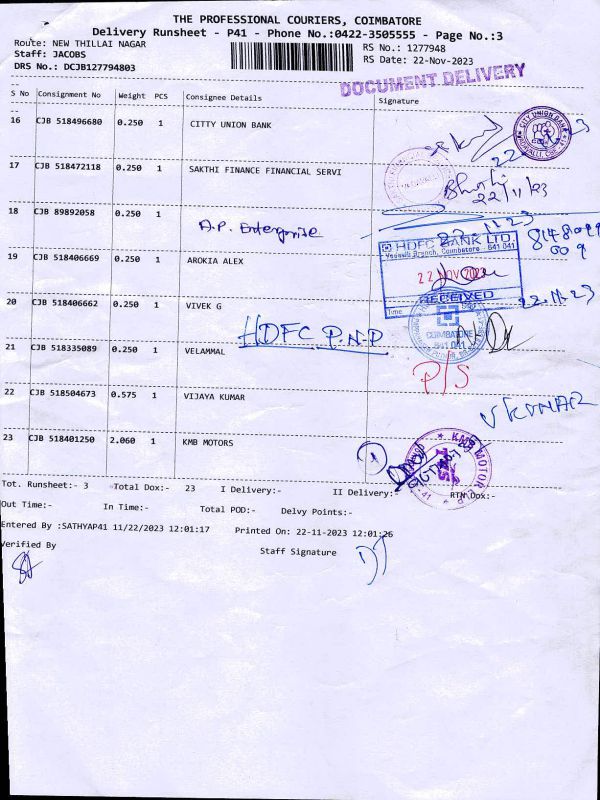 THE PROFESSIONAL COURIERS, COIMBATORE
Delivery Runsheet - P41 - Phone No.:0422-3505555 - Page No.:3
Route: NEW THILLAI NAGAR
RS No.: 1277948
Staff: JACOBS
RS Date: 22-Nov-2023
DRS No.: DCJB127794803
DOCUMENT DELIVERY
S No Consignment No Weight PCS Consignee Details Signature
16 CJB 518496680 0.250 1 CITTY UNION BANK
CITY UNION BANK
17 CJB 518472118 0.250 1 SAKTHI FINANCE FINANCIAL SERVI
22/11/23
18 CJB 89892058 0.250 1 A.P. Enterprise
HDFC BANK LTD.
Vadavalli Branch, Coimbatore 641 041
19 CJB 518406669 0.250 1 AROKIA ALEX
22 NOV 2023
RECEIVED
Time
22.11.23
20 CJB 518406662 0.250 1 VIVEK G
COIMBATORE
641 041
HDFC P.N.P
21 CJB 518335089 0.250 1 VELAMMAL
P/S
22 CJB 518504673 0.575 1 VIJAYA KUMAR
VKUMAR
23 CJB 518401250 2.060 1 KMB MOTORS
1
KMB MOTOR
Tot. Runsheet:- 3 Total Dox:- 23 I Delivery:- II Delivery:- RTN Dox:-
Out Time:- In Time:- Total POD:- Delvy Points:-
Entered By :SATHYAP41 11/22/2023 12:01:17 Printed On: 22-11-2023 12:01:26
Verified By
Staff Signature